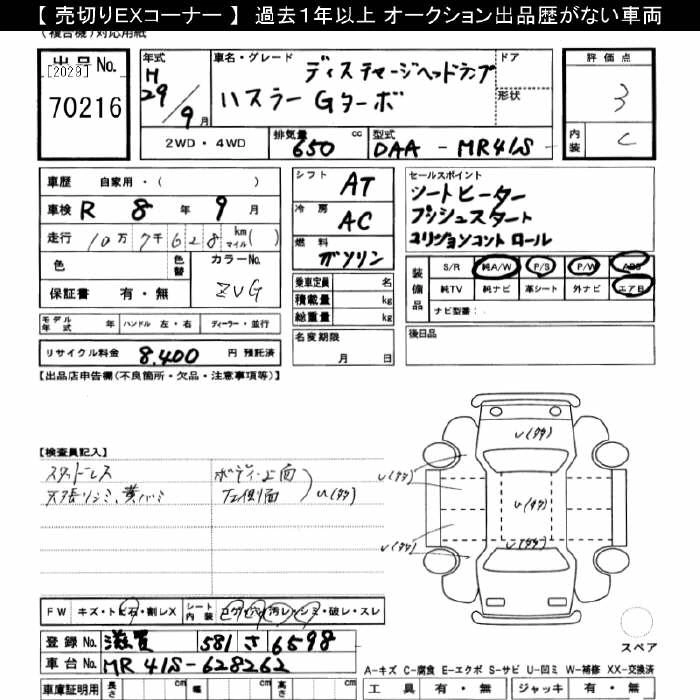 【 売切りEXコーナー 】 過去1年以上 オークション出品歴がない車両
(複合機)対応用紙
出 品 No.
[2029]
70216
年式
H
29/9月
車名・グレード
ディスチャージヘッドランプ
ハスラー Gターボ
ドア
形状
評 価 点
3
内装
C
2WD・4WD
排気量
650 cc
型式
DAA - MR41S-
車歴 自家用・( )
車検 R 8 年 9 月
走行 10万7千628 km マイル( )
色
色替
カラーNo.
ZVG
保証書 有・無
モデル年式 年
ハンドル 左・右
ディーラー・並行
リサイクル料金 8,400 円 預託済
シフト
AT
冷房
AC
燃料
ガソリン
乗車定員 名
積載量 kg
総重量 kg
名変期限
月 日
セールスポイント
シートヒーター
プッシュスタート
コリジョンコントロール
装備品
S/R 純A/W P/S P/W ABS
純TV 純ナビ 革シート 外ナビ エアB
ナビ型番:
後日品
【出品店申告欄(不良箇所・欠品・注意事項等)】
【検査員記入】
スタッドレス
天張りシミ、黄バミ
ボディ上面
左側面
U(タタ)
U(タタ)
U(タタ)
U(タタ)
U(タタ)
U(タタ)
FW キズ・トビ石・割レX
シート内装 コゲ・穴・汚レ・シミ・破レ・スレ
登録 No. 滋賀 581 さ 6598
車台 No. MR 41S-628262
車庫証明用 長さ cm 幅 cm 高さ cm
スペア
A-キズ C-腐食 E-エクボ S-サビ U-凹ミ W-補修 XX-交換済
工 具 有・無 ジャッキ 有・無